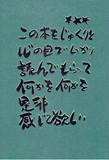 この本をじっくりと
心の目でしっかり
読んでもらって
何かを何かを
是非
感じて欲しい